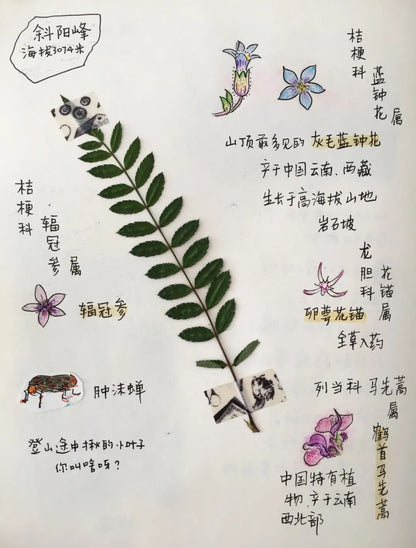 斜阳峰
海拔3074米
桔梗科
蓝钟花属
山顶最多见的 灰毛蓝钟花
产于中国云南、西藏
生长于高海拔山地
岩石坡
桔梗科
辐冠参属
辐冠参
龙胆科
花锚属
卵萼花锚
全草入药
肿沫蝉
列当科 马先蒿属
鹤首马先蒿
中国特有植
物.产于云南
西北部
登山途中揪的小叶子
你叫啥呀？